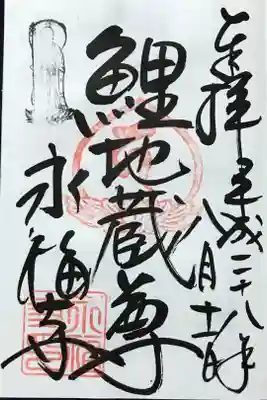 奉拝
平成二十八年
八月十一日
鯉地蔵尊
永福寺